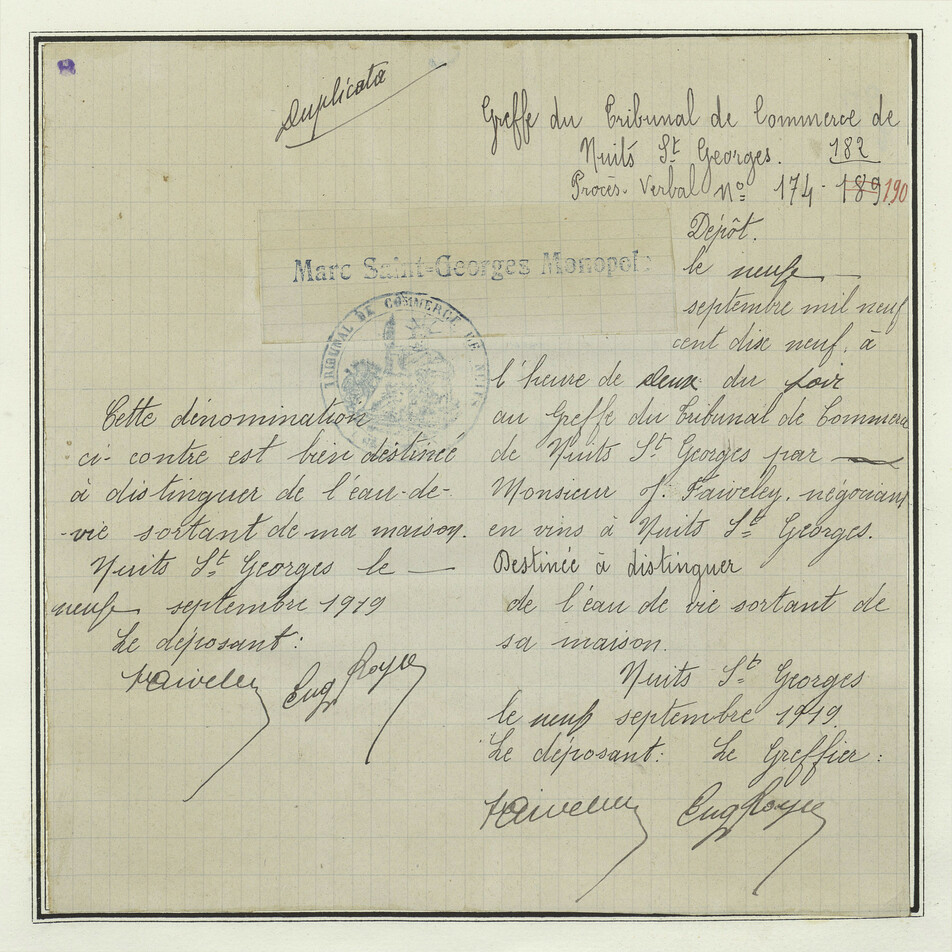 Duplicata
Greffe du Tribunal de Commerce de
Nuits St Georges. 182
Procès-Verbal No 174 - 189 190
Dépôt.
le neuf
septembre mil neuf
cent dix neuf, à
l'heure de deux du soir
au Greffe du Tribunal de Commerce
de Nuits St Georges par
Monsieur J. Faiveley, négociant
en vins à Nuits St Georges.
Destinée à distinguer
de l'eau de vie sortant de
sa maison.
Nuits St Georges
le neuf septembre 1919.
Le déposant: Le Greffier:
Faiveley Eug Royer
Marc Saint-Georges Monopole
TRIBUNAL DE COMMERCE DE NUITS
Cette dénomination
ci-contre est bien destinée
à distinguer de l'eau-de-
-vie sortant de ma maison.
Nuits St Georges le
neuf septembre 1919
Le déposant:
Faiveley Eug Royer